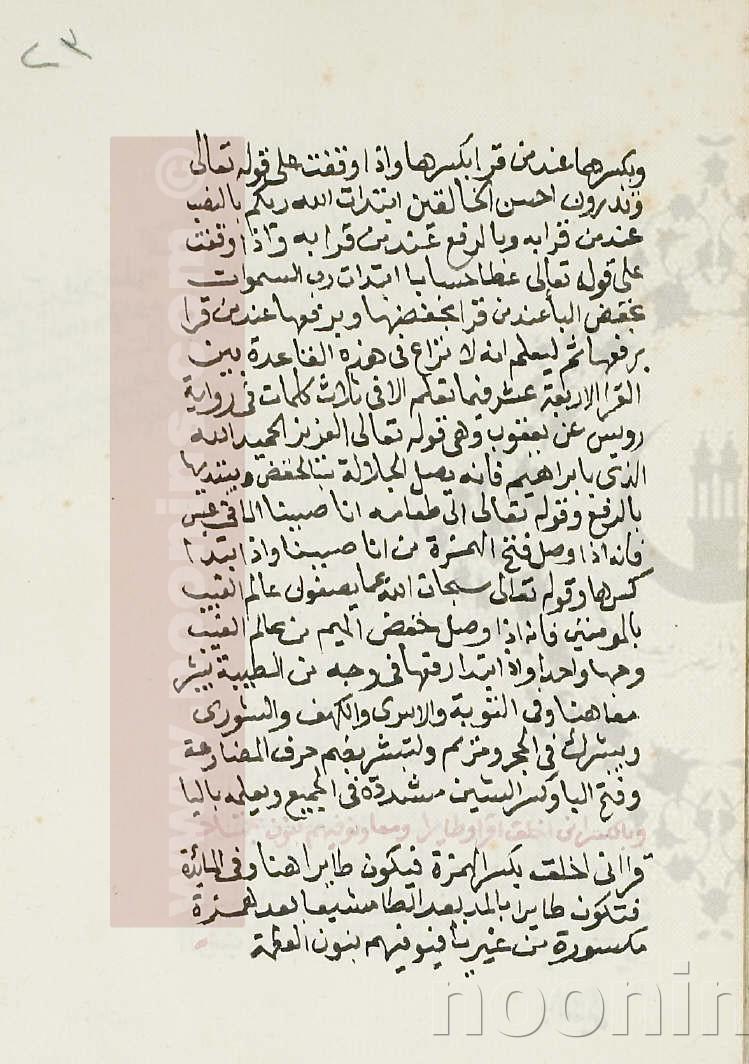 ٢٣
وبكسرهما عند من قرا بكسرها واذا وقفت على قوله تعالى
وتذرون احسن الخالقين ابتدات الله ربكم بالنصب
عند من قرا به وبالرفع عند من قرا به واذا وقفت
على قوله تعالى عطا حسابا ابتدات رب السموات
بخفض البا عند من قرا بخفضها وبرفعها عند من قرا
برفعها ثم ليعلم انه لا نزاع فى هذه القاعدة بين
القرا الاربعة عشر فيما تعلم الا فى ثلاث كلمات فى رواية
رويس عن يعقوب وهى قوله تعالى العزيز الحميد الله
الذى بابراهيم فانه يصل الجلالة بالخفض ويبتديها
بالرفع وقوله تعالى الى طعامه انا صببنا الما فى عبس
فانه اذا وصل فتح الهمزة من انا صببنا واذا ابتدا
كسرها وقوله تعالى سبحان الله عما يصفون عالم الغيب
بالمومنين فانه اذا وصل خفض الميم من عالم الغيب
وجها واحدا واذا ابتدا رفعها فى وجه من الطيبة يبشر
معا هنا وفى التوبة والاسرى والكهف والشورى
ويبشرك فى الحجر ومريم ولتبشر بضم حرف المضارعة
وفتح البا وكسر الشين مشددة فى الجميع ويعلمه باليا
وبالكسر انى اخلق اقرا وطايرا ومعا ونوفيهم بنون
قرا انى اخلق بكسر الهمزة فيكون طايرا هنا وفى المائدة
فتكون طايرا بالمد بعد الطا مشبعا بعد همزة
مكسورة من غير يا فنوفيهم بنون العظمة
www.noonins.com ©
noonin